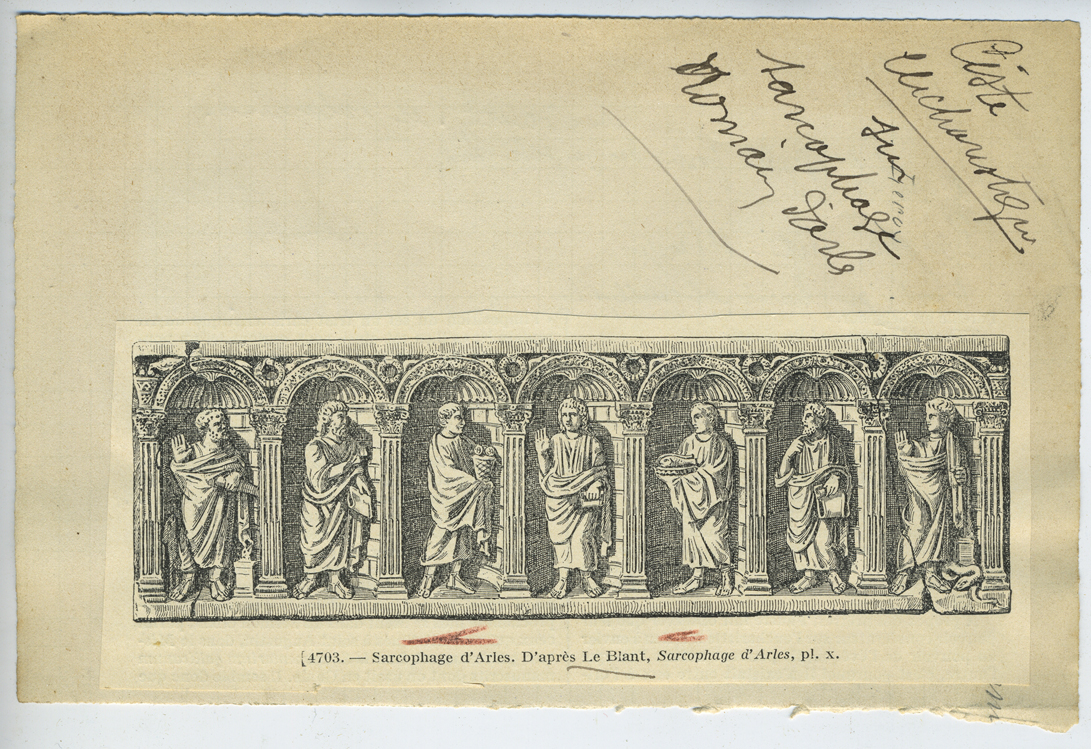 Ciste
eucharistique
sur
sarcophage
d'Arles
Romain
[4703. — Sarcophage d'Arles. D'après Le Blant, Sarcophage d'Arles, pl. x.